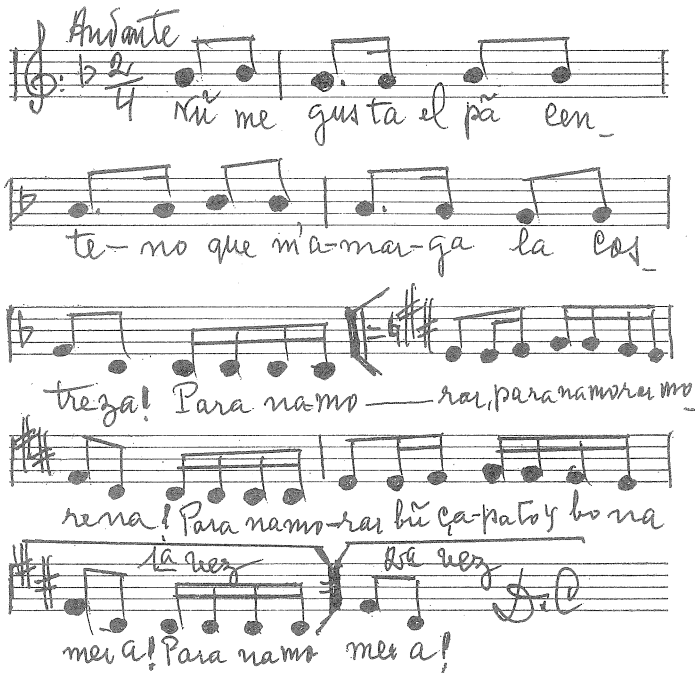 Andante
2/4
Nũ me gusta el pã cen_
te-no que m'a-mar-ga la cos_
treza! Para namo — rar, para namorar mo_
rena! Para namo-rar bũ ça-pato y bo na
1a vez 2a vez D.C
meia! Para namo meia!